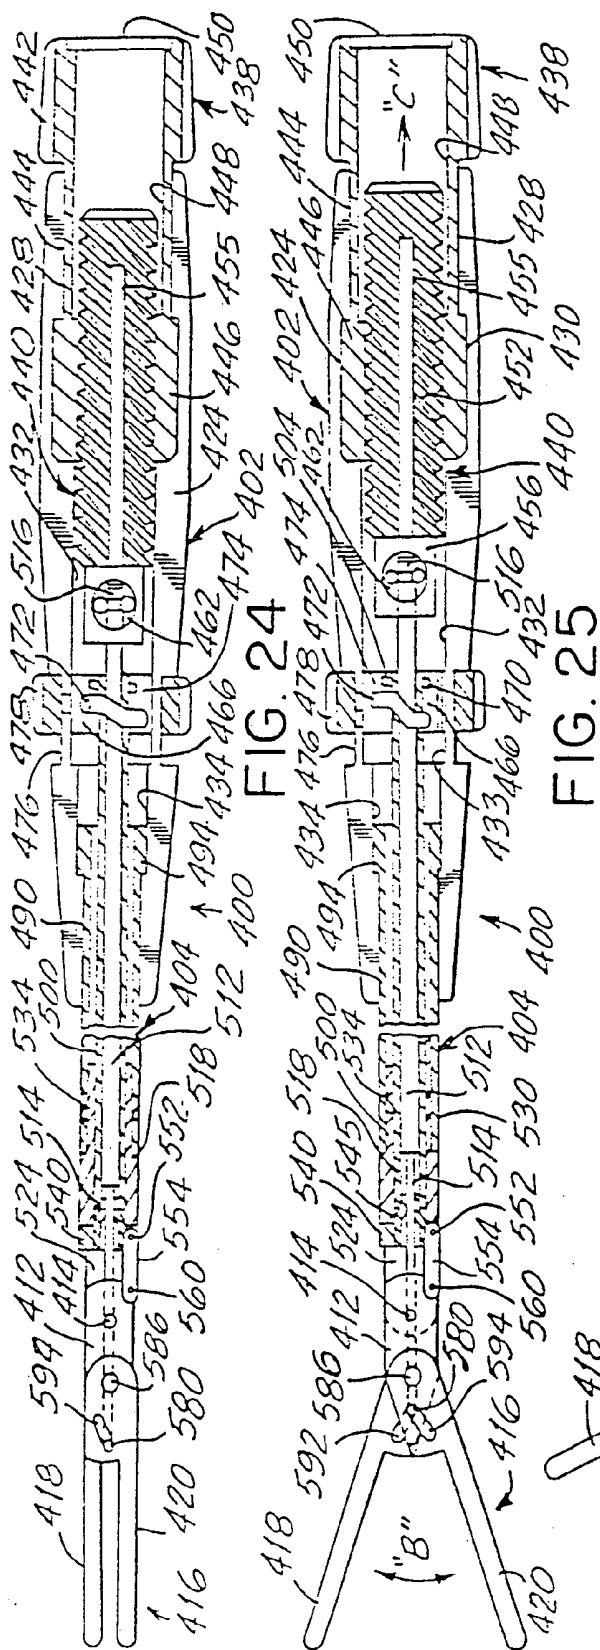 418
594
412
414
524
540
514
534
500
490
476
478
472
516
432
440
428
444
442
416
420
580
586
560
554
552
518
512
404
400
494
434
466
462
474
402
424
446
455
448
438
450
FIG. 24
418
592
586
412
414
524
540
545
518
534
500
490
494
434
476
478
472
474
462
504
402
424
446
444
450
"B"
"C"
420
416
594
580
560
554
552
514
530
512
404
400
433
466
470
432
516
456
440
430
452
455
428
448
438
FIG. 25
418